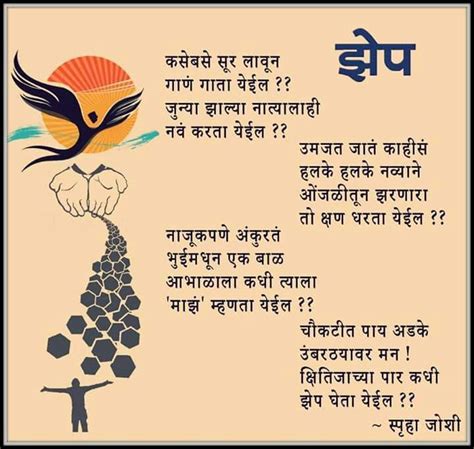 झेप
कसेबसे सूर लावून
गाणं गाता येईल ??
जुन्या झाल्या नात्यालाही
नवं करता येईल ??
उमजत जातं काहीसं
हलके हलके नव्याने
ओंजळीतून झरणारा
तो क्षण धरता येईल ??
नाजूकपणे अंकुरतं
भुईमधून एक बाळ
आभाळाला कधी त्याला
'माझं' म्हणता येईल ??
चौकटीत पाय अडके
उंबरठयावर मन !
क्षितिजाच्या पार कधी
झेप घेता येईल ??
~ स्पृहा जोशी